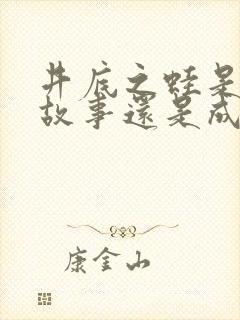 井底之蛙是
故事還是成
康金山